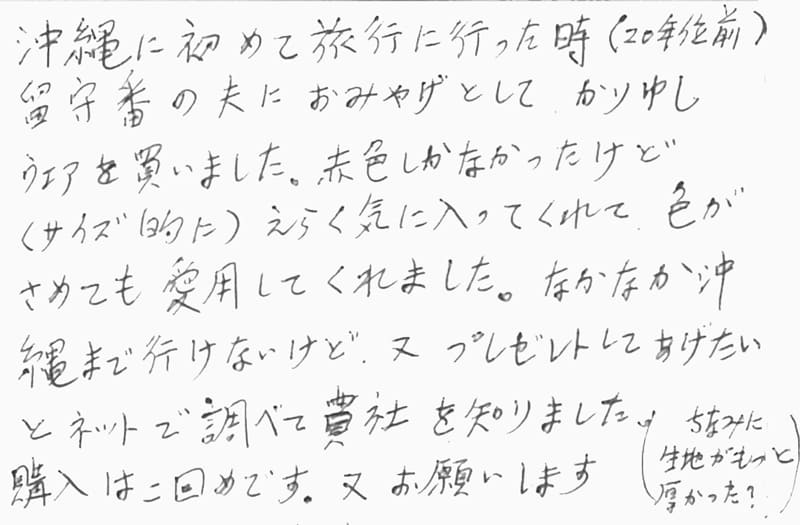 沖縄に初めて旅行に行った時(20年位前)
留守番の夫におみやげとして かりゆし
ウェアを買いました。赤色しかなかったけど
(サイズ的に)えらく気に入ってくれて、色が
さめても愛用してくれました。なかなか沖
縄まで行けないけど、又プレゼントしてあげたい
とネットで調べて貴社を知りました。
購入は二回めです。又お願いします
(ちなみに
生地がもっと
厚かった?)